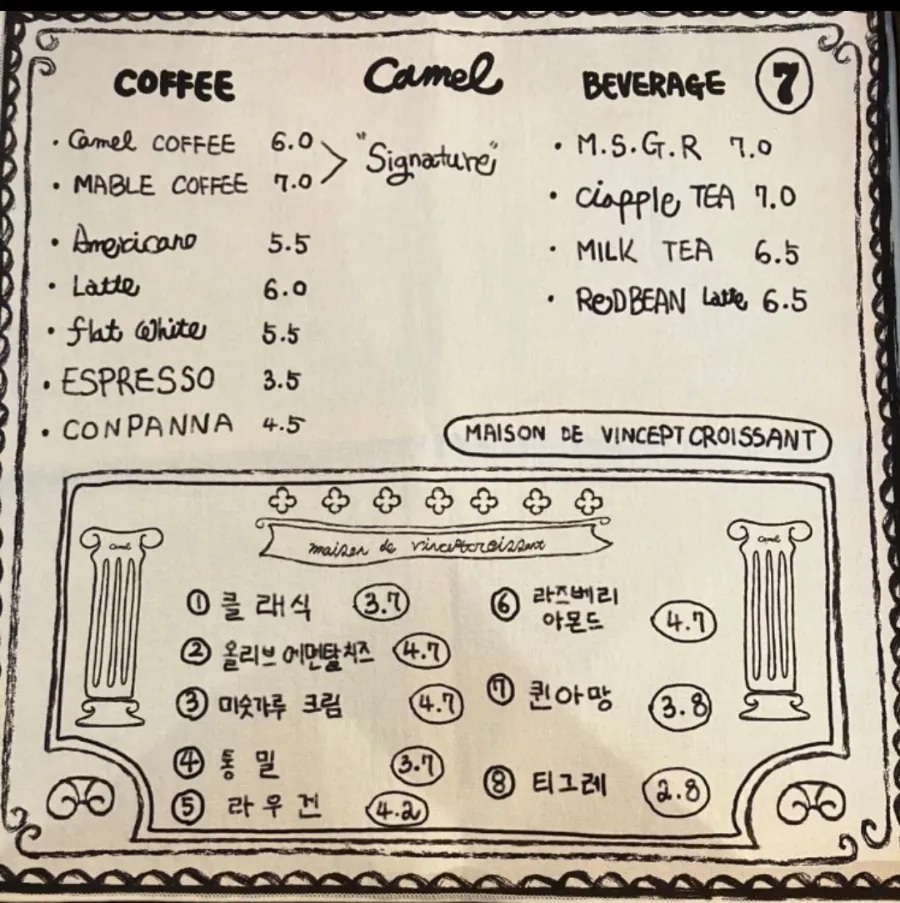 Camel
COFFEE
· Camel COFFEE 6.0
· MABLE COFFEE 7.0
"Signature"
· Americano 5.5
· Latte 6.0
· flat white 5.5
· ESPRESSO 3.5
· CONPANNA 4.5
BEVERAGE 7
· M.S.G.R 7.0
· Ciapple TEA 7.0
· MILK TEA 6.5
· REDBEAN Latte 6.5
MAISON DE VINCEPT CROISSANT
maison de vinceptcroissant
Camel
Camel
①클래식 3.7
② 올리브 에멘탈치즈 4.7
③ 미숫가루 크림 4.7
④ 통밀 3.7
⑤ 라우겐 4.2
⑥ 라즈베리
아몬드 4.7
⑦ 퀸아망 3.8
⑧ 티그레 2.8